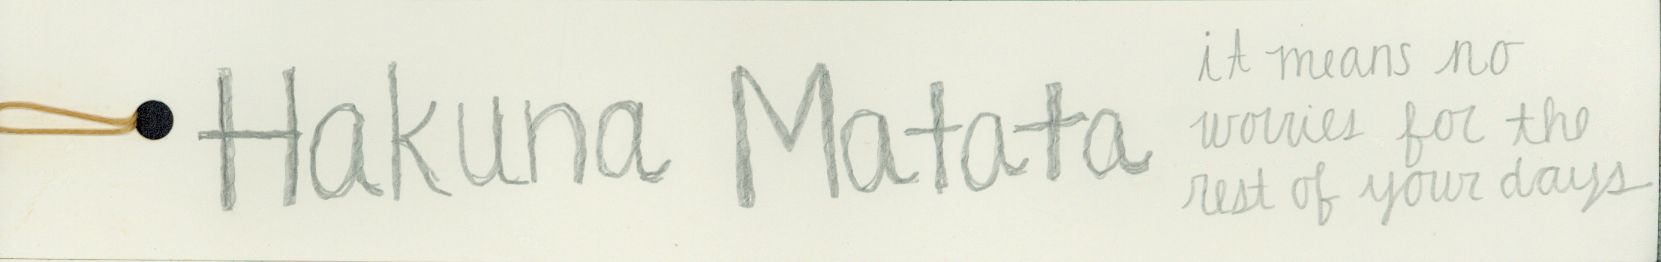 Hakuna Matata
it means no
worries for the
rest of your days